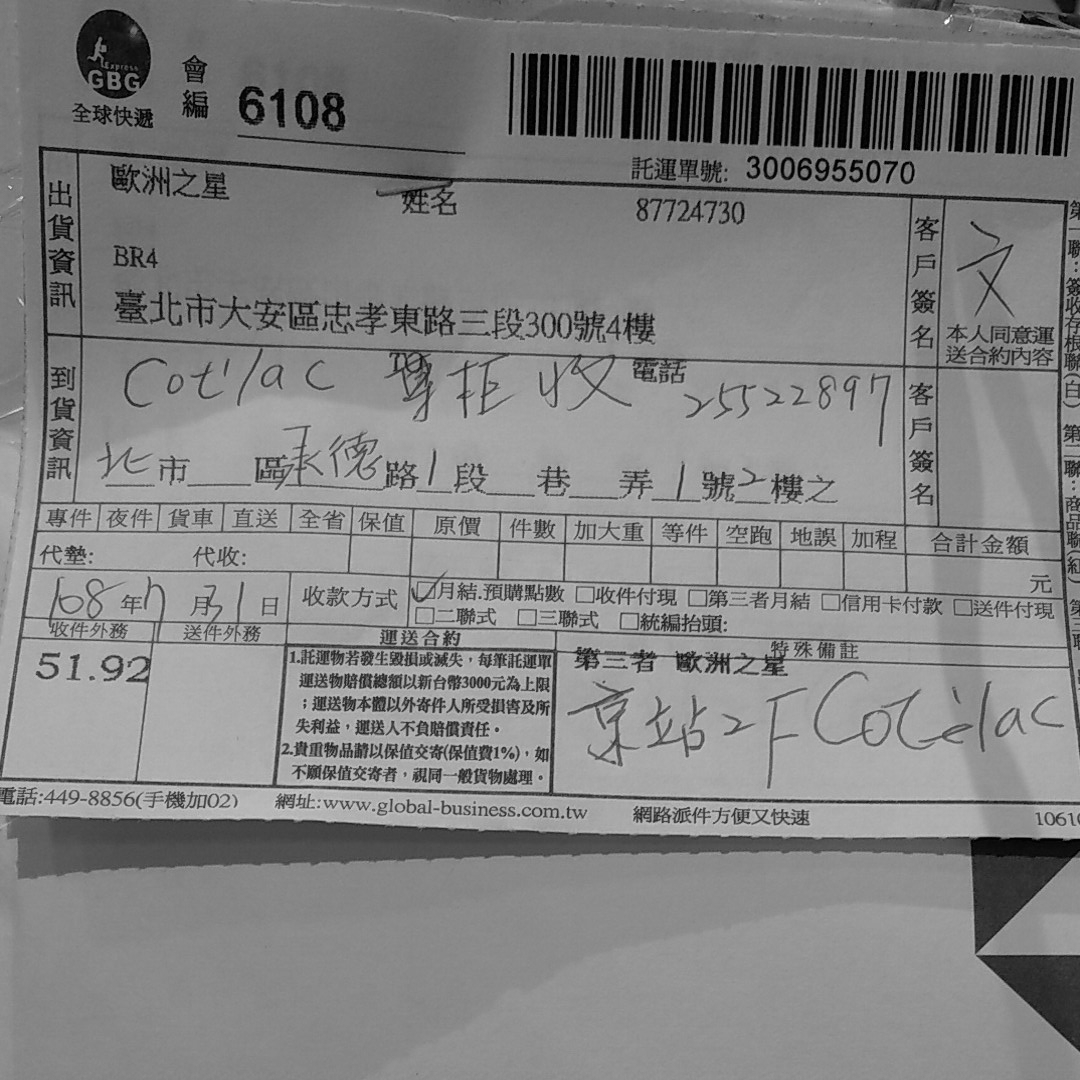 Express
GBG
全球快遞
會編 6108
託運單號: 3006955070
出貨資訊
歐洲之星 姓名 87724730
BR4
臺北市大安區忠孝東路三段300號4樓
客戶簽名
文
本人同意運
送合約內容
到貨資訊
Cotélac 專柜 收 電話 25522897
北市 區承德路1段 巷 弄1號2樓之
客戶簽名
專件 夜件 貨車 直送 全省 保值 原價 件數 加大重 等件 空跑 地誤 加程 合計金額
代墊: 代收: 元
108年7月31日
收款方式 ☑月結.預購點數 □收件付現 □第三者月結 □信用卡付款 □送件付現
□二聯式 □三聯式 □統編抬頭:
收件外務 送件外務 運送合約 特殊備註
51.92
1.託運物若發生毀損或滅失，每筆託運單
運送物賠償總額以新台幣3000元為上限
；運送物本體以外寄件人所受損害及所
失利益，運送人不負賠償責任。
2.貴重物品請以保值交寄(保值費1%)，如
不願保值交寄者，視同一般貨物處理。
第三者 歐洲之星
京站2F Cotélac
電話:449-8856(手機加02) 網址:www.global-business.com.tw 網路派件方便又快速
第一聯:簽收存根聯(白) 第二聯:商品聯(紅)